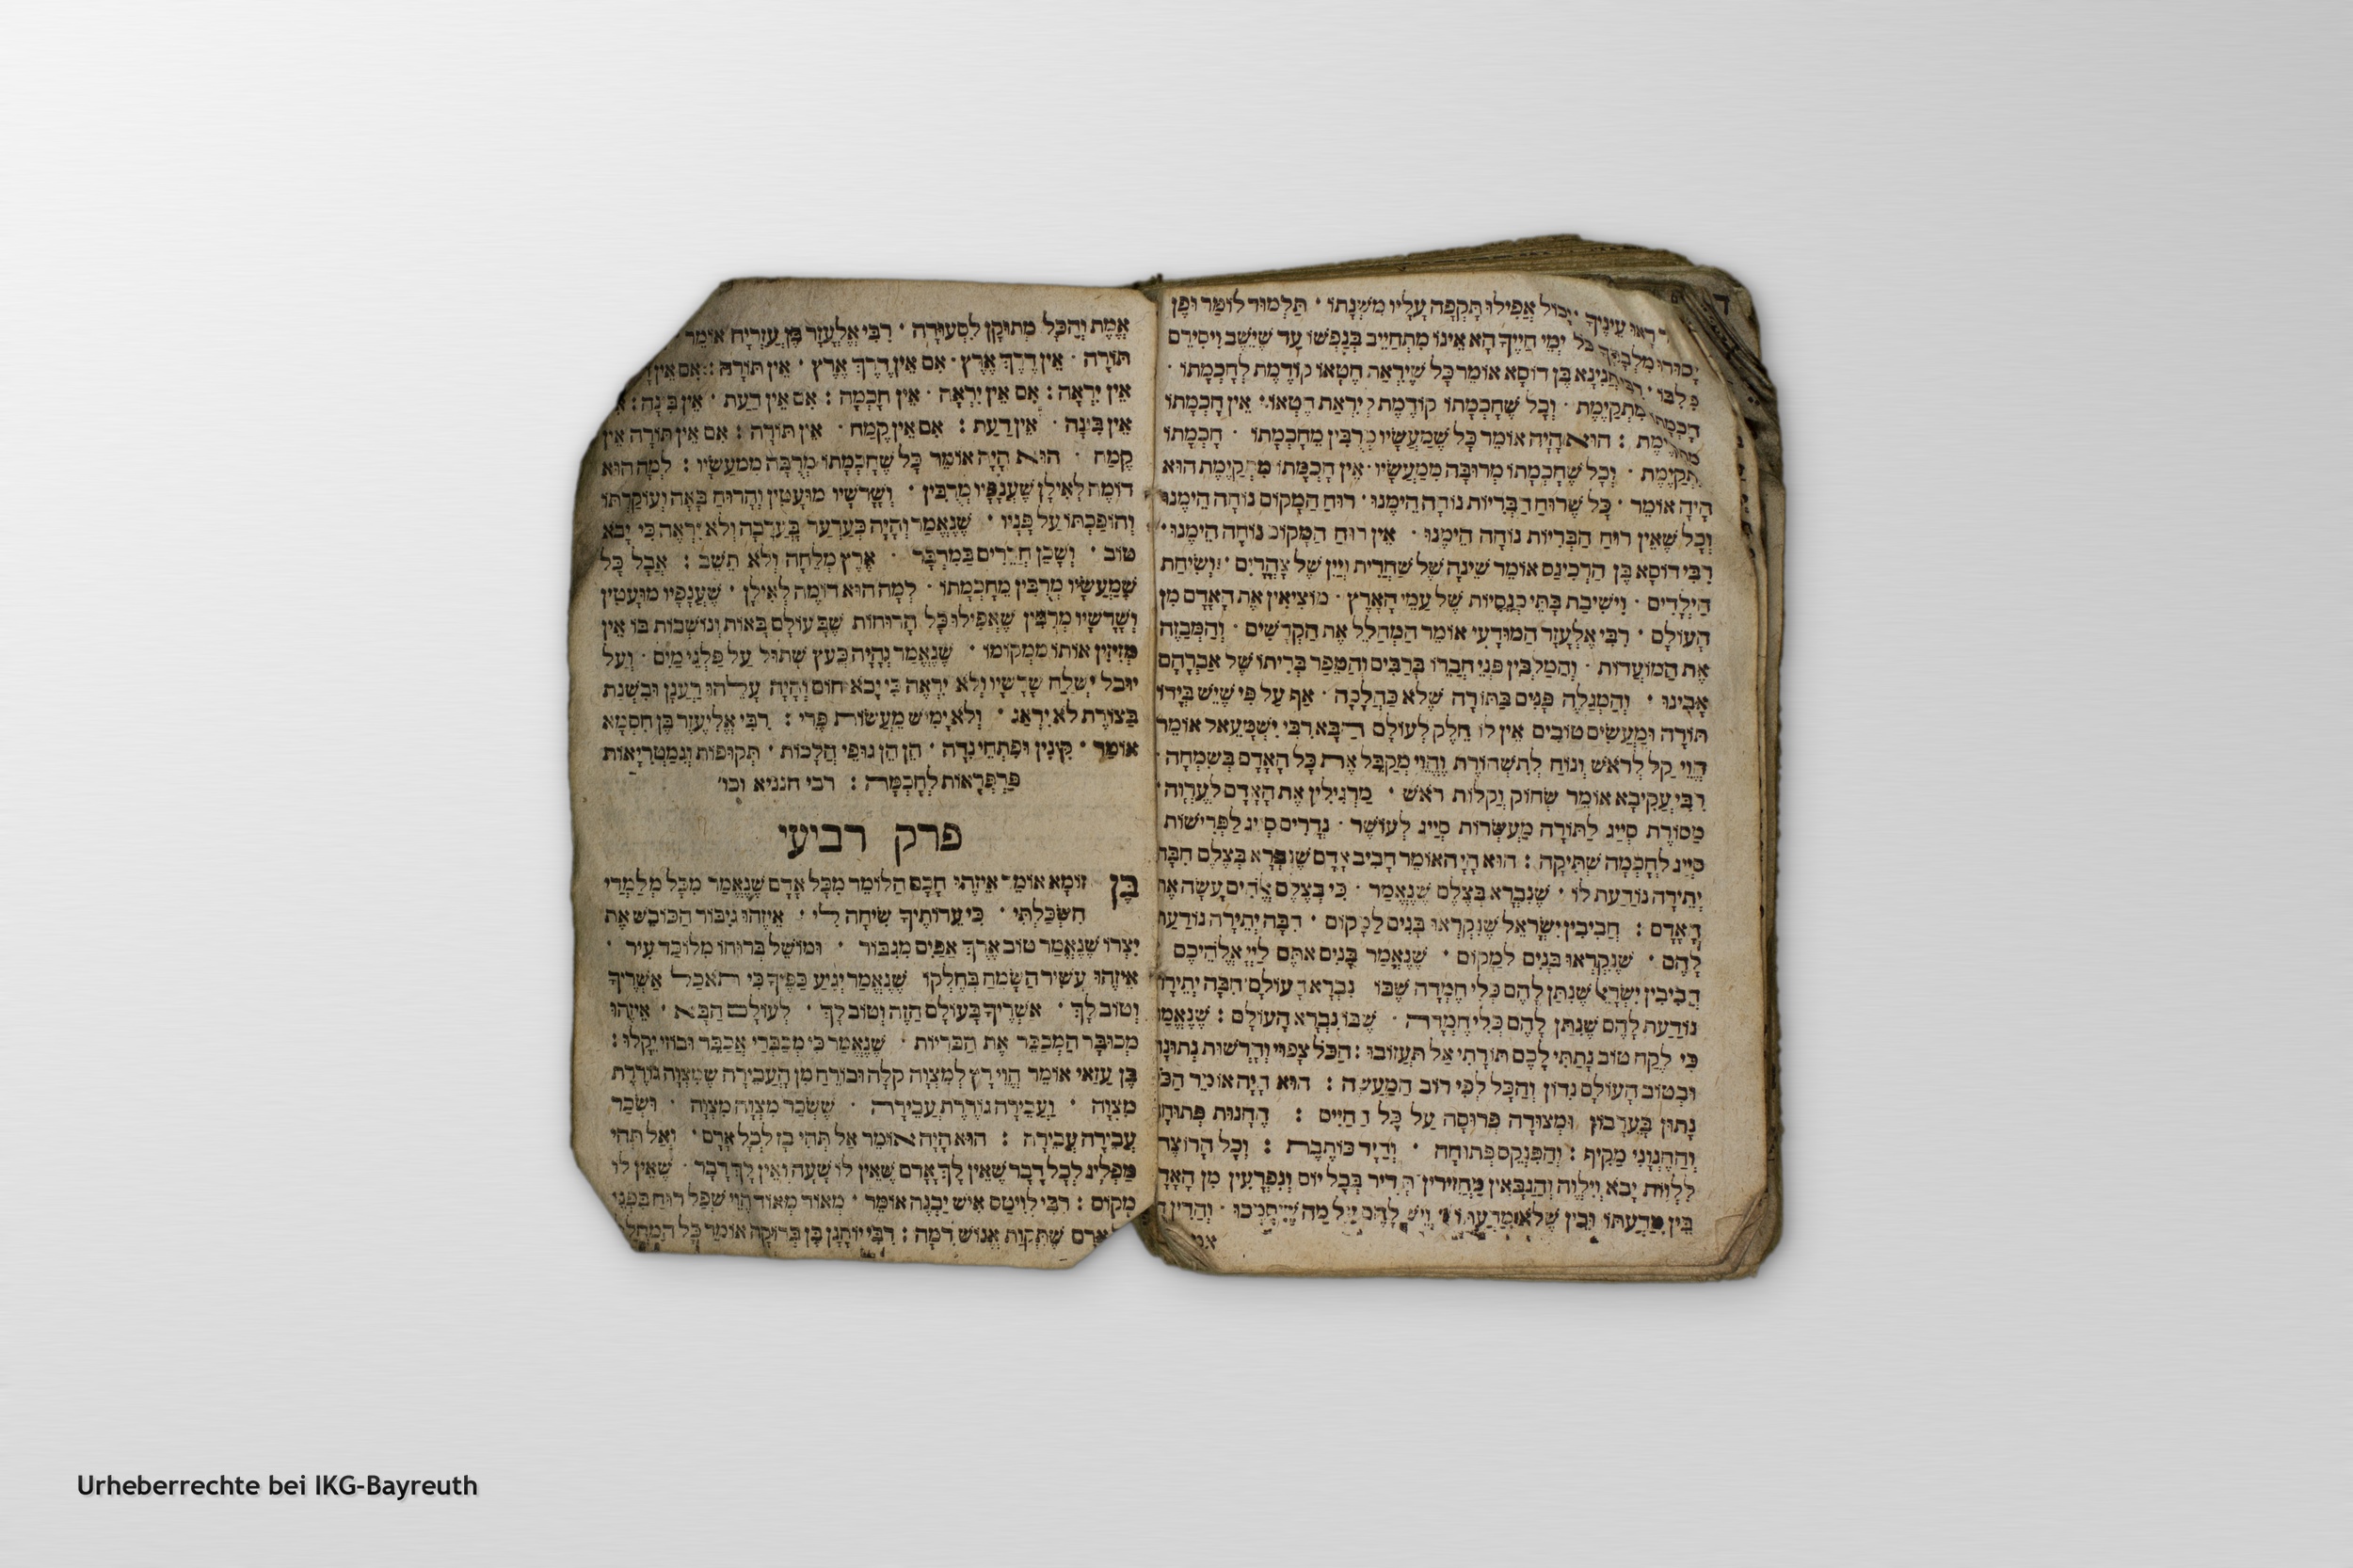 ד
ראו עיניך · יָכוֹל אֲפִילוּ תָּקְפָה עָלָיו מִשְׁנָתוֹ · תַּלְמוּד לוֹמַר וּפֶן
יָסוּרוּ מִלְּבָבְךָ כֹּל יְמֵי חַיֶּיךָ הָא אֵינוֹ מִתְחַיֵּיב בְּנַפְשׁוֹ עַד שֶׁיֵּשֵׁב וִיסִירֵם
מִלִּבּוֹ · רַבִּי חֲנִינָא בֶּן דּוֹסָא אוֹמֵר כָּל שֶׁיִּרְאַת חֶטְאוֹ קוֹדֶמֶת לְחָכְמָתוֹ ·
חָכְמָתוֹ מִתְקַיֶּמֶת · וְכָל שֶׁחָכְמָתוֹ קוֹדֶמֶת לְיִרְאַת חֶטְאוֹ · אֵין חָכְמָתוֹ
מִתְקַיֶּמֶת : הוּא הָיָה אוֹמֵר כָּל שֶׁמַּעֲשָׂיו מְרֻבִּין מֵחָכְמָתוֹ · חָכְמָתוֹ
מִתְקַיֶּמֶת · וְכָל שֶׁחָכְמָתוֹ מְרוּבָּה מִמַּעֲשָׂיו · אֵין חָכְמָתוֹ מִתְקַיֶּמֶת הוּא
הָיָה אוֹמֵר · כָּל שֶׁרוּחַ הַבְּרִיּוֹת נוֹחָה הֵימֶנּוּ · רוּחַ הַמָּקוֹם נוֹחָה הֵימֶנּוּ
וְכָל שֶׁאֵין רוּחַ הַבְּרִיּוֹת נוֹחָה הֵימֶנּוּ · אֵין רוּחַ הַמָּקוֹם נוֹחָה הֵימֶנּוּ ·
רַבִּי דוֹסָא בֶּן הַרְכִּינַס אוֹמֵר שֵׁינָה שֶׁל שַׁחֲרִית וְיַיִן שֶׁל צָהֳרָיִם · וְשִׂיחַת
הַיְלָדִים · וִישִׁיבַת בָּתֵּי כְנֵסִיּוֹת שֶׁל עַמֵּי הָאָרֶץ · מוֹצִיאִין אֶת הָאָדָם מִן
הָעוֹלָם · רַבִּי אֶלְעָזָר הַמּוּדָעִי אוֹמֵר הַמְחַלֵּל אֶת הַקֳּדָשִׁים · וְהַמְבַזֶּה
אֶת הַמּוֹעֲדוֹת · וְהַמַּלְבִּין פְּנֵי חֲבֵרוֹ בָּרַבִּים וְהַמֵּפֵר בְּרִיתוֹ שֶׁל אַבְרָהָם
אָבִינוּ · וְהַמְגַלֶּה פָּנִים בַּתּוֹרָה שֶׁלֹּא כַהֲלָכָה · אַף עַל פִּי שֶׁיֵּשׁ בְּיָדוֹ
תּוֹרָה וּמַעֲשִׂים טוֹבִים אֵין לוֹ חֵלֶק לָעוֹלָם הַבָּא רַבִּי יִשְׁמָעֵאל אוֹמֵר
הֱוֵי קַל לְרֹאשׁ וְנוֹחַ לְתִשְׁחוֹרֶת וֶהֱוֵי מְקַבֵּל אֶת כָּל הָאָדָם בְּשִׂמְחָה ·
רַבִּי עֲקִיבָא אוֹמֵר שְׂחוֹק וְקַלּוּת רֹאשׁ · מַרְגִּילִין אֶת הָאָדָם לְעֶרְוָה ·
מַסּוֹרֶת סְיָיג לַתּוֹרָה מַעְשְׂרוֹת סְיָיג לָעוֹשֶׁר · נְדָרִים סְיָיג לַפְּרִישׁוּת
סְיָיג לַחָכְמָה שְׁתִיקָה : הוּא הָיָה אוֹמֵר חָבִיב אָדָם שֶׁנִּבְרָא בְּצֶלֶם חִבָּה
יְתֵירָה נוֹדַעַת לוֹ · שֶׁנִּבְרָא בְּצֶלֶם שֶׁנֶּאֱמַר · כִּי בְּצֶלֶם אֱלֹהִים עָשָׂה אֶת
הָאָדָם : חֲבִיבִין יִשְׂרָאֵל שֶׁנִּקְרְאוּ בָּנִים לַמָּקוֹם · חִבָּה יְתֵירָה נוֹדַעַת
לָהֶם · שֶׁנִּקְרְאוּ בָּנִים לַמָּקוֹם · שֶׁנֶּאֱמַר בָּנִים אַתֶּם לַיְיָ אֱלֹהֵיכֶם
חֲבִיבִין יִשְׂרָאֵל שֶׁנִּתַּן לָהֶם כְּלִי חֶמְדָּה שֶׁבּוֹ נִבְרָא הָעוֹלָם חִבָּה יְתֵירָה
נוֹדַעַת לָהֶם שֶׁנִּתַּן לָהֶם כְּלִי חֶמְדָּה · שֶׁבּוֹ נִבְרָא הָעוֹלָם : שֶׁנֶּאֱמַר
כִּי לֶקַח טוֹב נָתַתִּי לָכֶם תּוֹרָתִי אַל תַּעֲזוֹבוּ : הַכֹּל צָפוּי וְהָרְשׁוּת נְתוּנָה
וּבְטוֹב הָעוֹלָם נִדּוֹן וְהַכֹּל לְפִי רוֹב הַמַּעֲשֶׂה : הוּא הָיָה אוֹמֵר הַכֹּל
נָתוּן בָּעֵרָבוֹן וּמְצוּדָה פְּרוּסָה עַל כָּל הַחַיִּים : הֶחָנוּת פְּתוּחָה
וְהַחֶנְוָנִי מַקִּיף : וְהַפִּנְקָס פְּתוּחָה · וְהַיָּד כּוֹתֶבֶת : וְכָל הָרוֹצֶה
לִלְווֹת יָבֹא וְיִלְוֶה וְהַגַּבָּאִין מַחֲזִירִין תָּדִיר בְּכָל יוֹם וְנִפְרָעִין מִן הָאָדָם
בֵּין מִדַּעְתּוֹ וּבֵין שֶׁלֹּא מִדַּעְתּוֹ וְיֵשׁ לָהֶם עַל מַה שֶּׁיִּסְמֹכוּ · וְהַדִּין
אמ
אֱמֶת וְהַכֹּל מְתוּקָּן לִסְעוּדָה · רַבִּי אֶלְעָזָר בֶּן עֲזַרְיָה אוֹמֵר
תּוֹרָה · אֵין דֶּרֶךְ אֶרֶץ · אִם אֵין דֶּרֶךְ אֶרֶץ · אֵין תּוֹרָה : אִם אֵין
אֵין יִרְאָה : אִם אֵין יִרְאָה · אֵין חָכְמָה : אִם אֵין דַּעַת · אֵין בִּינָה :
אֵין בִּינָה · אֵין דַּעַת : אִם אֵין קֶמַח · אֵין תּוֹרָה : אִם אֵין תּוֹרָה אֵין
קֶמַח · הוּא הָיָה אוֹמֵר כָּל שֶׁחָכְמָתוֹ מְרֻבָּה מִמַּעֲשָׂיו : לְמָה הוּא
דוֹמֶה לְאִילָן שֶׁעֲנָפָיו מְרֻבִּין · וְשָׁרָשָׁיו מוּעָטִין וְהָרוּחַ בָּאָה וְעוֹקַרְתּוֹ
וְהוֹפַכְתּוֹ עַל פָּנָיו · שֶׁנֶּאֱמַר וְהָיָה כְּעַרְעָר בָּעֲרָבָה וְלֹא יִרְאֶה כִּי יָבֹא
טוֹב · וְשָׁכַן חֲרֵרִים בַּמִּדְבָּר · אֶרֶץ מְלֵחָה וְלֹא תֵשֵׁב : אֲבָל כָּל
שֶׁמַּעֲשָׂיו מְרֻבִּין מֵחָכְמָתוֹ · לְמָה הוּא דוֹמֶה לְאִילָן · שֶׁעֲנָפָיו מוּעָטִין
וְשָׁרָשָׁיו מְרֻבִּין שֶׁאֲפִילוּ כָּל הָרוּחוֹת שֶׁבָּעוֹלָם בָּאוֹת וְנוֹשְׁבוֹת בּוֹ אֵין
מְזִיזִין אוֹתוֹ מִמְּקוֹמוֹ · שֶׁנֶּאֱמַר וְהָיָה כְּעֵץ שָׁתוּל עַל פַּלְגֵי מַיִם · וְעַל
יוּבַל יְשַׁלַּח שָׁרָשָׁיו וְלֹא יִרְאֶה כִּי יָבֹא חוֹם וְהָיָה עָלֵהוּ רַעֲנָן וּבִשְׁנַת
בַּצּוֹרֶת לֹא יִדְאָג · וְלֹא יָמִישׁ מֵעֲשׂוֹת פֶּרִי : רַבִּי אֱלִיעֶזֶר בֶּן חִסְמָא
אוֹמֵר · קִינִין וּפִתְחֵי נִדָּה · הֵן הֵן גּוּפֵי הֲלָכוֹת · תְּקוּפוֹת וְגִמַטְרִיָאוֹת
פַּרְפְּרָאוֹת לַחָכְמָה : רבי חנניא וכו׳
פרק רביעי
בֶּן זוֹמָא אוֹמֵר אֵיזֶהוּ חָכָם הַלּוֹמֵד מִכָּל אָדָם שֶׁנֶּאֱמַר מִכָּל מְלַמְּדַי
הִשְׂכַּלְתִּי · כִּי עֵדוֹתֶיךָ שִׂיחָה לִי · אֵיזֶהוּ גִבּוֹר הַכּוֹבֵשׁ אֶת
יִצְרוֹ שֶׁנֶּאֱמַר טוֹב אֶרֶךְ אַפַּיִם מִגִּבּוֹר · וּמוֹשֵׁל בְּרוּחוֹ מִלּוֹכֵד עִיר ·
אֵיזֶהוּ עָשִׁיר הַשָּׂמֵחַ בְּחֶלְקוֹ שֶׁנֶּאֱמַר יְגִיעַ כַּפֶּיךָ כִּי תֹאכַל אַשְׁרֶיךָ
וְטוֹב לָךְ · אַשְׁרֶיךָ בָּעוֹלָם הַזֶּה וְטוֹב לָךְ · לָעוֹלָם הַבָּא · אֵיזֶהוּ
מְכוּבָּד הַמְכַבֵּד אֶת הַבְּרִיּוֹת · שֶׁנֶּאֱמַר כִּי מְכַבְּדַי אֲכַבֵּד וּבוֹזַי יֵקָלּוּ :
בֶּן עַזַּאי אוֹמֵר הֱוֵי רָץ לְמִצְוָה קַלָּה וּבוֹרֵחַ מִן הָעֲבֵירָה שֶׁמִּצְוָה גּוֹרֶרֶת
מִצְוָה · וַעֲבֵירָה גוֹרֶרֶת עֲבֵירָה · שֶׁשְּׂכַר מִצְוָה מִצְוָה · וּשְׂכַר
עֲבֵירָה עֲבֵירָה : הוּא הָיָה אוֹמֵר אַל תְּהִי בָז לְכָל אָדָם · וְאַל תְּהִי
מַפְלִיג לְכָל דָּבָר שֶׁאֵין לָךְ אָדָם שֶׁאֵין לוֹ שָׁעָה וְאֵין לָךְ דָּבָר · שֶׁאֵין לוֹ
מָקוֹם : רַבִּי לְוִיטַס אִישׁ יַבְנֶה אוֹמֵר · מְאוֹד מְאוֹד הֱוֵי שְׁפַל רוּחַ בִּפְנֵי
אָדָם שֶׁתִּקְוַת אֱנוֹשׁ רִמָּה : רַבִּי יוֹחָנָן בֶּן בְּרוֹקָה אוֹמֵר כָּל הַמְחַלֵּל
Urheberrechte bei IKG-Bayreuth